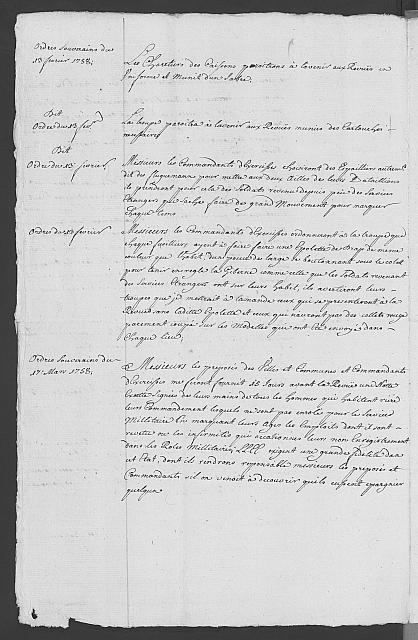 Ordres Souverains du
13 fevrier 1758;
Les Chareteurs des Caissons paroitrons à l'avenir aux Revües en
uniforme et Munit d'un Sabre;
Dit
Ordre du 13 fev.r
La troupe paroitra à l'avenir aux Revües munies des Cartouches
necessaires
Dit
Ordre du 13 fevrier
Messieurs les Commandants d'Exercisses choisiront des Espalliers autrem.t
dit des flugermann pour mettre aux deux Ailes de leurs Bataillions
ils prendront pour cela des Soldats revenu depuis peu des Services
Etrangers qui sache faire des grand Mouvement pour marquer
chaque tems
Ordre du 13 fevrier
Messieurs les Commandants d'Exercisses ordonneront à la troupe que
chaque fusilliers ayent à faire faire une Epolette de drap de meme
couleur que l'habit, d'un pouce de large se boutonnant sous le colet
pour tenir en regle la Giberne comme celle que les Soldats revenant
des Services Etrangers ont sur leurs habit, ils avertiront leurs
troupes que je mettrait à l'amande ceux qui se presenteront à la
Revüe sans ladite Epolette et ceux qui n'auront pas des colets rouge
parement coupé sur les Modelles qui ont été envoyé dans
chaque lieu;
Ordres Souverains du
17.e Mars 1758;
Messieurs les preposés des Villes et Communes et Commandants
d'Exercisses me feront fournit 15 Jours avant la Revüe une Notte
exacte Signée de leurs mains de tous les Hommes qui habitent rière
leurs Commandement lesquels ne sont pas enrolés pour les Services
Millitaire en marquant leurs Ages les Emplois dont il sont
revetu ou les infirmités qui occasionnes leurs non Enregistrement
dans les Roles Millitaires LLEE exigent une grande fidelité dans
cet Etat, dont ils rendrons reponsable messieurs les preposés et
Commandants s'il on venoit à decouvrir qu'ils eussent eparguer
quelqun